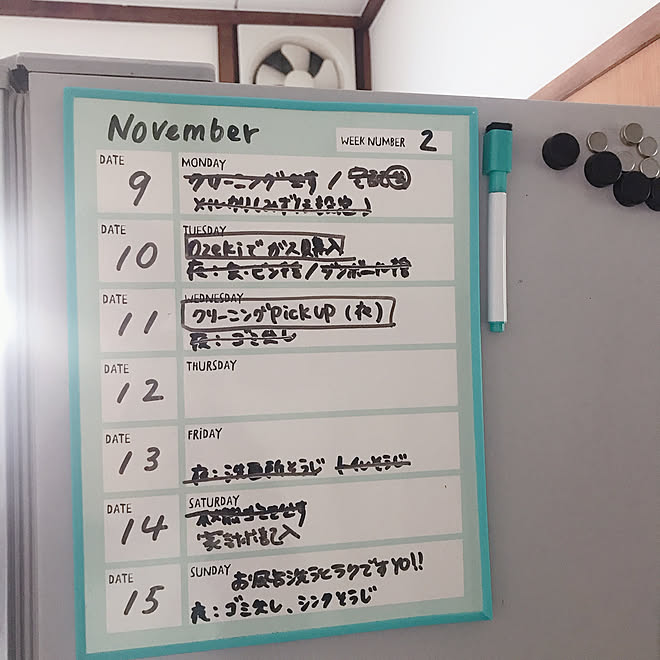 November
WEEK NUMBER 2
DATE MONDAY
9 クリーニング出す /
DATE TUESDAY
10 Ozekiでガス購入
夜:カン・ビン捨 / ダンボール捨
DATE WEDNESDAY
11 クリーニングPick UP (夜)
夜:ゴミ出し
DATE THURSDAY
12
DATE FRIDAY
13 夜:洗面所そうじ トイレそうじ
DATE SATURDAY
14
DATE SUNDAY
15 お風呂洗うとラクですYO!!
夜:ゴミ出し、シンクそうじ